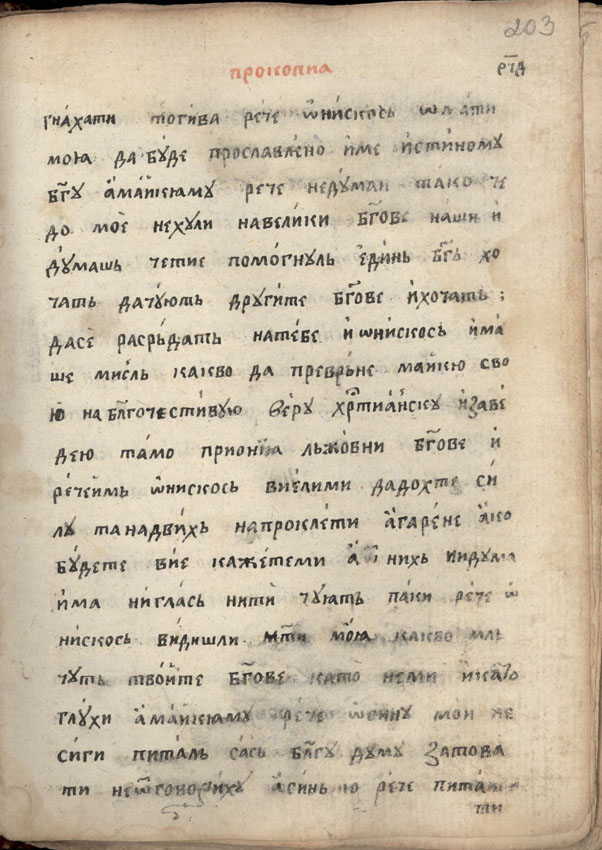 203
прокопиа
рт҃д
гнѧхати тогива рече ѡнискось ѡ мати
моꙗ да буде прославлено име истиному
бг҃у а маикꙗму рече не думаи тако че
до мое не хули на велики бг҃ове наши и
думашь че тие помогнуль единь бг҃ь хо
чать да чують другите бг҃ове и хочать :
да се расръдать на тебе и ѡнискось има
ше мисль какво да преврьне маикю сво
ю на бл҃гочестивую веру хр҃тианску и заве
дею тамо при онїиа льжовни бг҃ове и
рече имь ѡнискось вие ли ми дадохте си
лу та надвихь на проклети агарене ако
будете вие кажете ми а ѿ нихь ни дума
има ни глась нити чують паки рече ѡ
нискось видиш ли мт҃и моꙗ какво мль
чуть твоите бг҃ове като неми и като
глухи а маикꙗму рече ѡ сину мои не
си ги питаль сась благу думу за това
ти не ѿговориху а синь ю рече питаи
ти